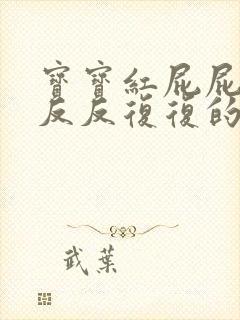 寶寶紅屁屁
反反復復的
武葉